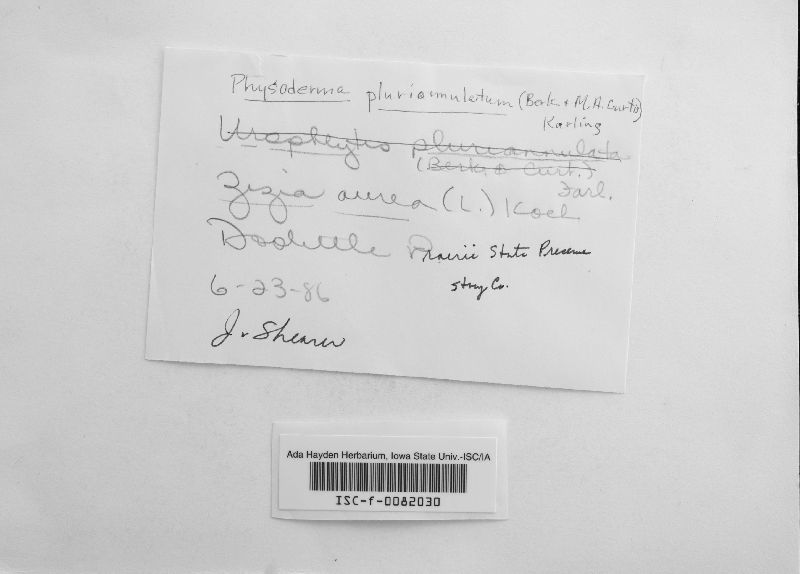 Physoderma pluriannulatum (Berk. & M.A. Curtis)
Karling
Urophlyctis pluriannulata
(Berk. & Curt.)
Farl.
Zizia aurea (L.) Koch
Doolittle Prairie State Preserve
Story Co.
6-23-86
J. Shearer
Ada Hayden Herbarium, Iowa State Univ.-ISC/IA
ISC-f-0082030